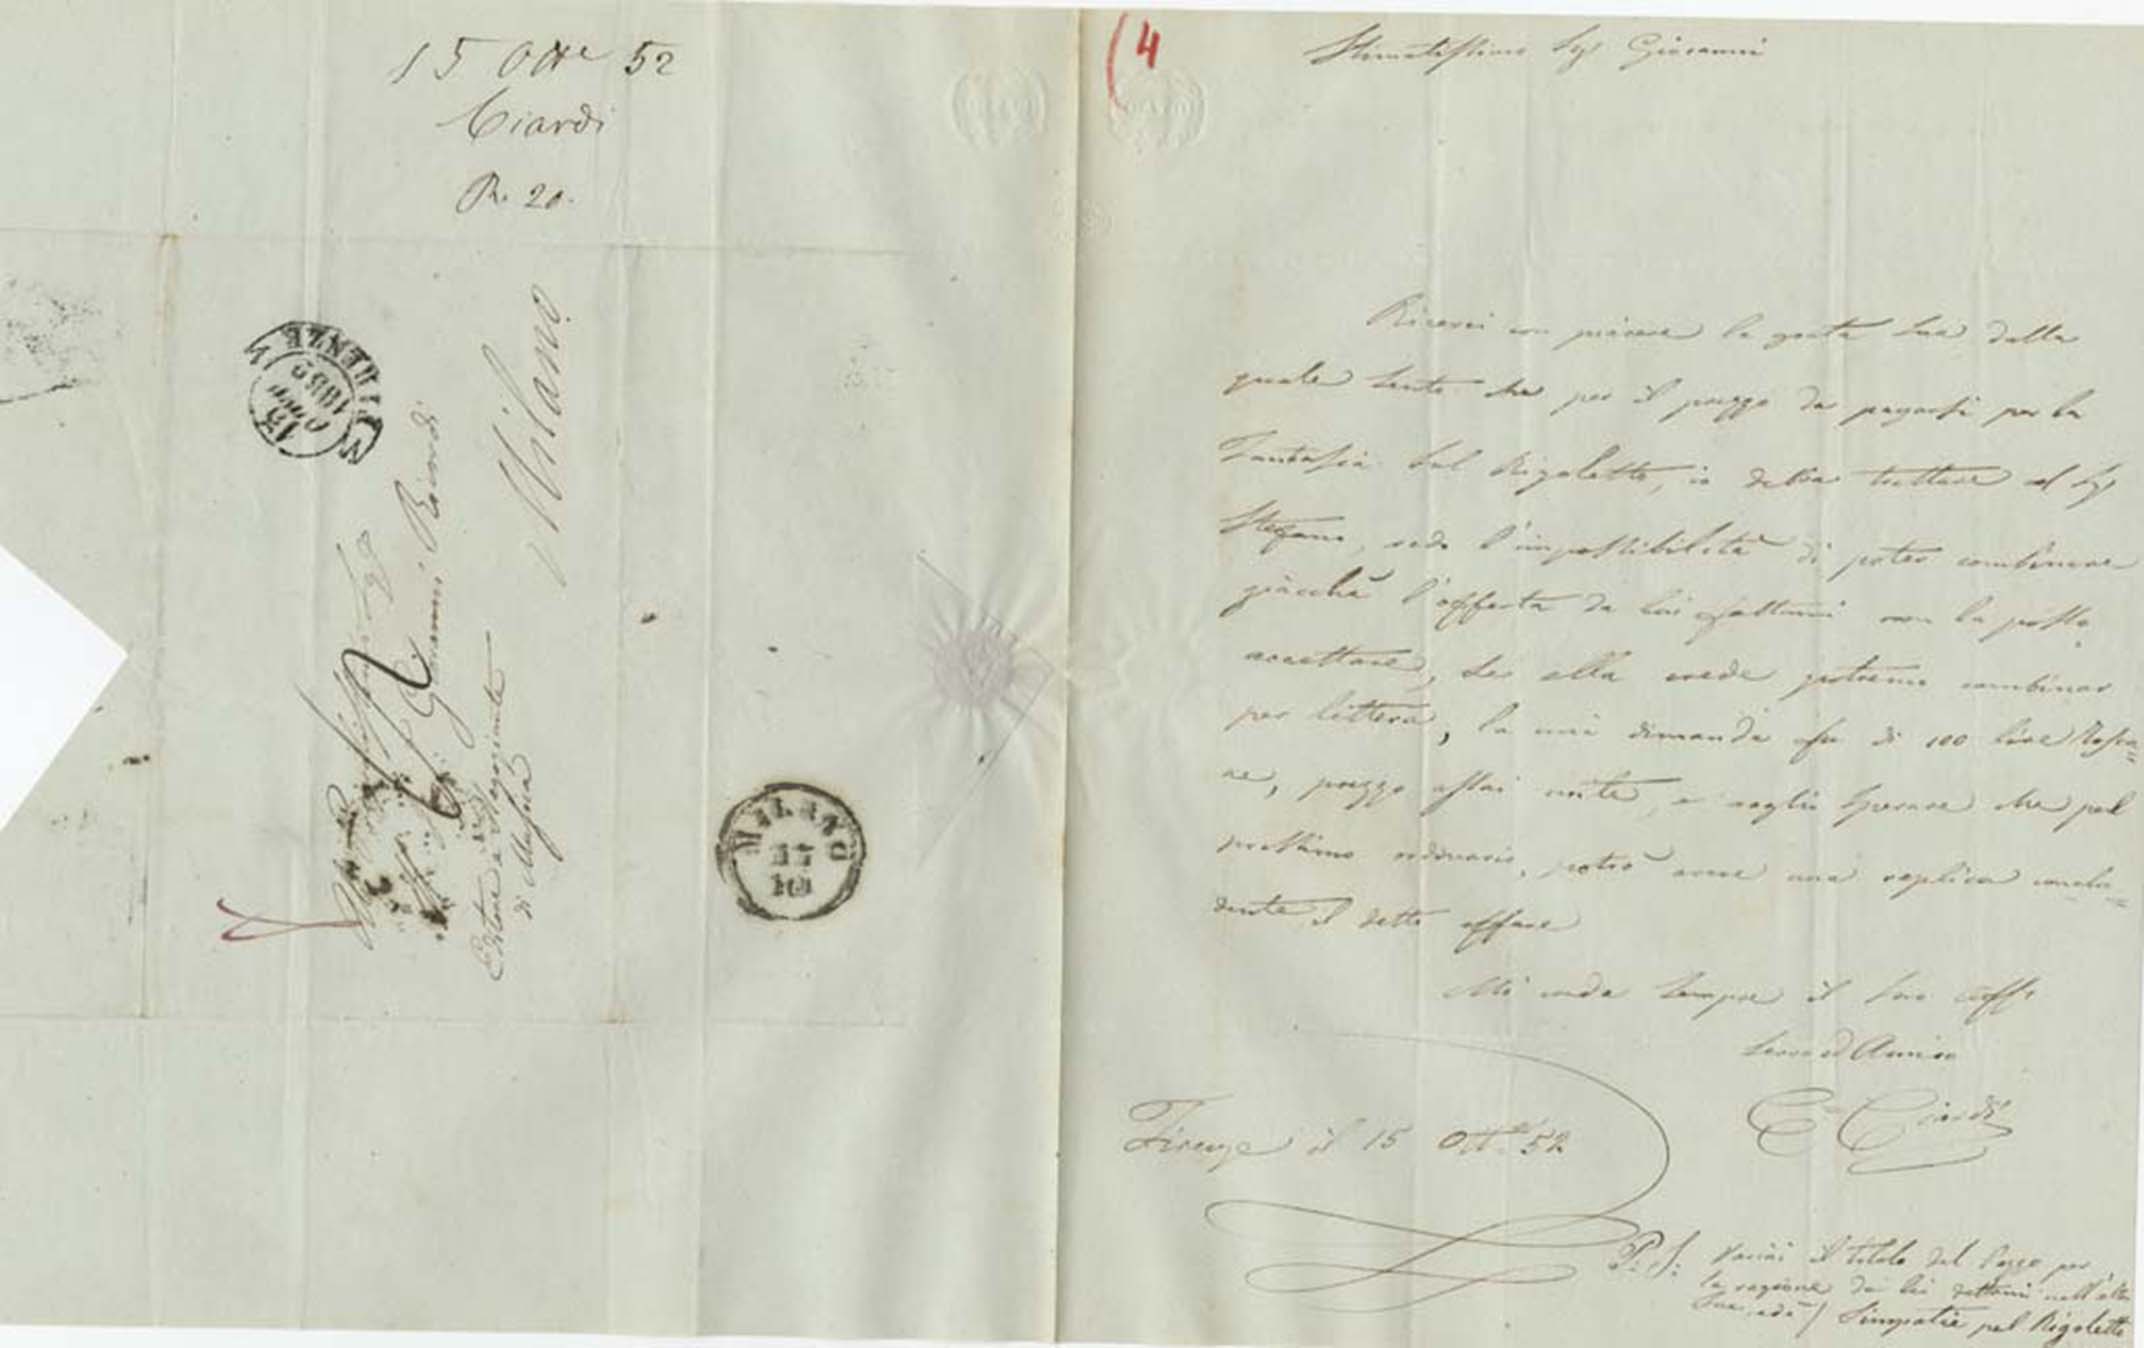 15 Otte 52
Ciardi
R. 20.
FIRENZE
15
1852
Giovanni Ricordi
Editore e Negoziante
di Musica
Milano
MILANO
17
10
(4
Stimatissimo Sigr Giovanni
Ricevei con piacere la grata Sua dalla
quale sento che per il prezzo da pagarsi per la
Fantasia sul Rigoletto, io debba trattare al Sigr
Stefano, vedo l'impossibilità di poter combinare
giacchè l'offerta da lui fattami non la posso
accettare, se ella crede potremo combinar
per lettera, la mia dimanda fu di 100 lire Tosca=
ne, prezzo assai mite, e voglio sperare che pel
prossimo ordinario, potrò avere una replica conclu=
dente il detto affare
Mi creda sempre il suo aff:
Servo ed Amico
Ce Ciardi
Firenze il 15 Otte 52
P.S: Variai il titolo del Pezzo per
la ragione da lei dettami nell'altra
Sua, cioè / Simpatie pel Rigoletto